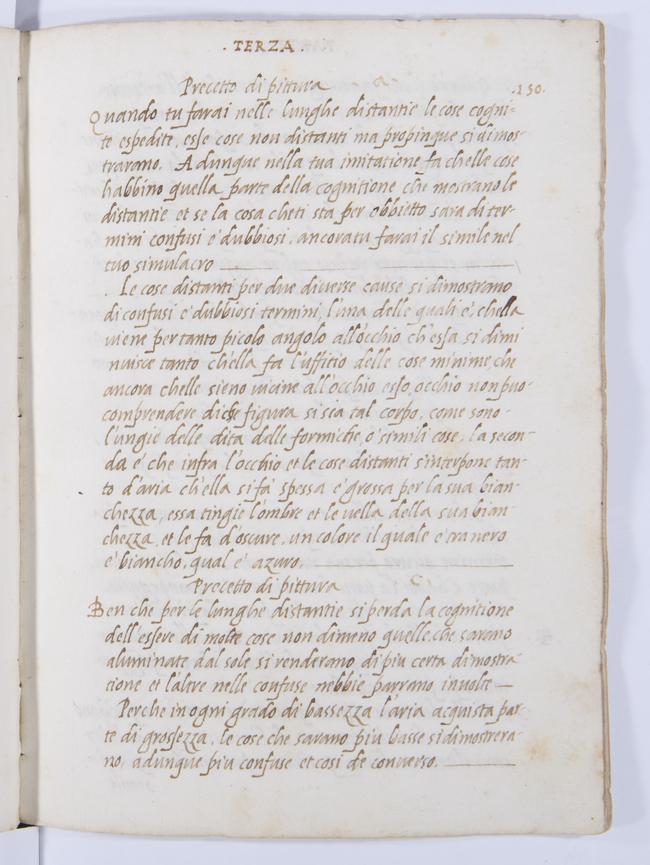 . TERZA .
Precetto di pittura
.130.
Quando tu farai nelle lunghe distantie le cose cogni=
te espedite, esse cose non distanti ma propinque si dimos=
trarano. Adunque nella tua imitatione fa chelle cose
habbino quella parte della cognitione che mostrano le
distantie et se la cosa cheti sta per obbietto sara di ter-
mini confusi e' dubbiosi, ancora tu farai il simile nel
tuo simulacro
. Le cose distanti per due diverse cause si dimostrano
di confusi e' dubbiosi termini, l'una delle quali e', chella
viene per tanto picolo angolo all'occhio ch'essa si dimi
nuisce tanto ch'ella fa l'uffitio delle cose minime, che
ancora chelle sieno vicine all'occhio esso occhio non puo
comprendere di che figura si sia tal corpo, come sono
l'ungie delle dita delle formiche, o' simili cose. la secon-
da e' che infra l'occhio et le cose distanti s'interpone tan-
to d'aria ch'ella si fa' spessa e' grossa per la sua bian-
chezza, essa tingie l'ombre et le vella della sua bian
chezza, et le fa d'oscure, un colore il quale e' tra nero
e' biancho, qual e' azuro.
Precetto di pittura
Ben che per le lunghe distantie si perda la cognitione
dell'essere di molte cose non dimeno quelle, che sarano
aluminate dal sole si renderano di piu certa dimostra
tione et l'altre nelle confuse nebbie parrano involte
Perche in ogni grado di bassezza l'aria acquista par-
te di grossezza, le cose che sarano piu basse si dimostrera-
no, adunque piu confuse et cosi de converso.